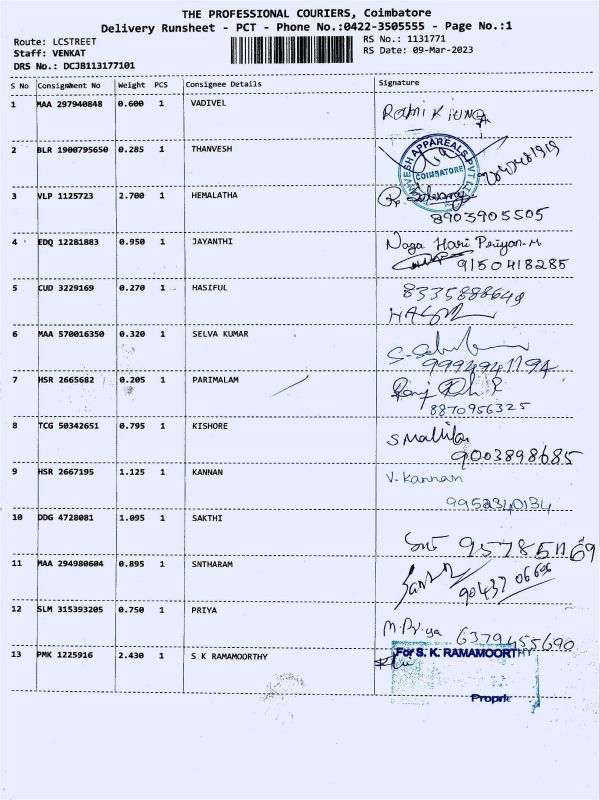 THE PROFESSIONAL COURIERS, Coimbatore
Delivery Runsheet - PCT - Phone No.:0422-3505555 - Page No.:1
Route: LCSTREET
Staff: VENKAT
DRS No.: DCJB113177101
RS No.: 1131771
RS Date: 09-Mar-2023
S No Consignment No Weight PCS Consignee Details Signature
1 MAA 297940848 0.600 1 VADIVEL
2 BLR 1900795650 0.285 1 THANVESH
APPAREALS PVT LTD
COIMBATORE
3 VLP 1125723 2.700 1 HEMALATHA
8903905505
4 EDQ 12281883 0.950 1 JAYANTHI Naga Hari Priyan-M
9150418285
5 CUD 3229169 0.270 1 HASIFUL
6 MAA 570016350 0.320 1 SELVA KUMAR
7 HSR 2665682 0.205 1 PARIMALAM
8870956325
8 TCG 50342651 0.795 1 KISHORE S Mallika
9003898685
9 HSR 2667195 1.125 1 KANNAN V. Kannan
9952340134
10 DDG 4728081 1.095 1 SAKTHI
11 MAA 294980604 0.895 1 SNTHARAM
90437 06696
12 SLM 315393205 0.750 1 PRIYA
M. Priya 6379455690
13 PMK 1225916 2.430 1 S K RAMAMOORTHY
For S. K. RAMAMOORTHY
Proprie